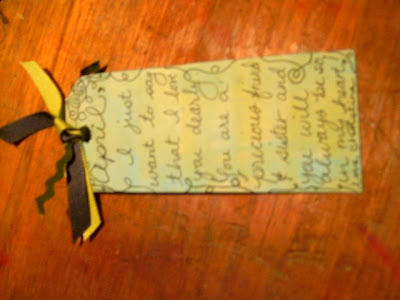 April,
I just
want to say
that I love
you dearly.
You are a
precious friend
& sister and
you will
always be so
in my heart.